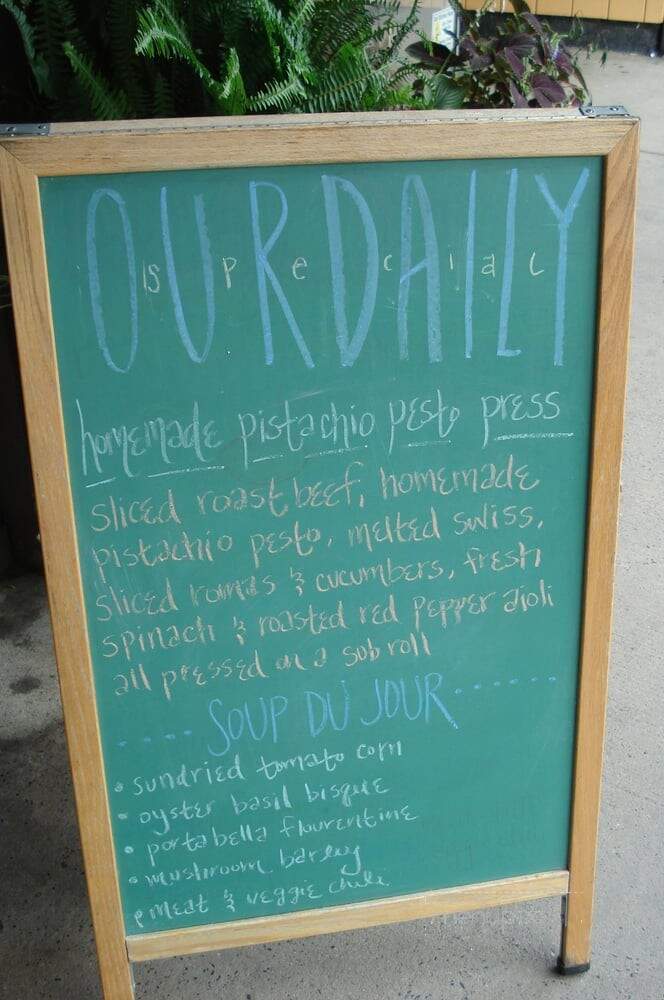 OUR DAILY
special
homemade pistachio pesto press
sliced roast beef, homemade
pistachio pesto, melted swiss,
sliced romas & cucumbers, fresh
spinach & roasted red pepper aioli
all pressed on a sub roll
..... SOUP DU JOUR ......
• sundried tomato corn
• oyster basil bisque
• portabella flourentine
• mushroom barley
• meat & veggie chili